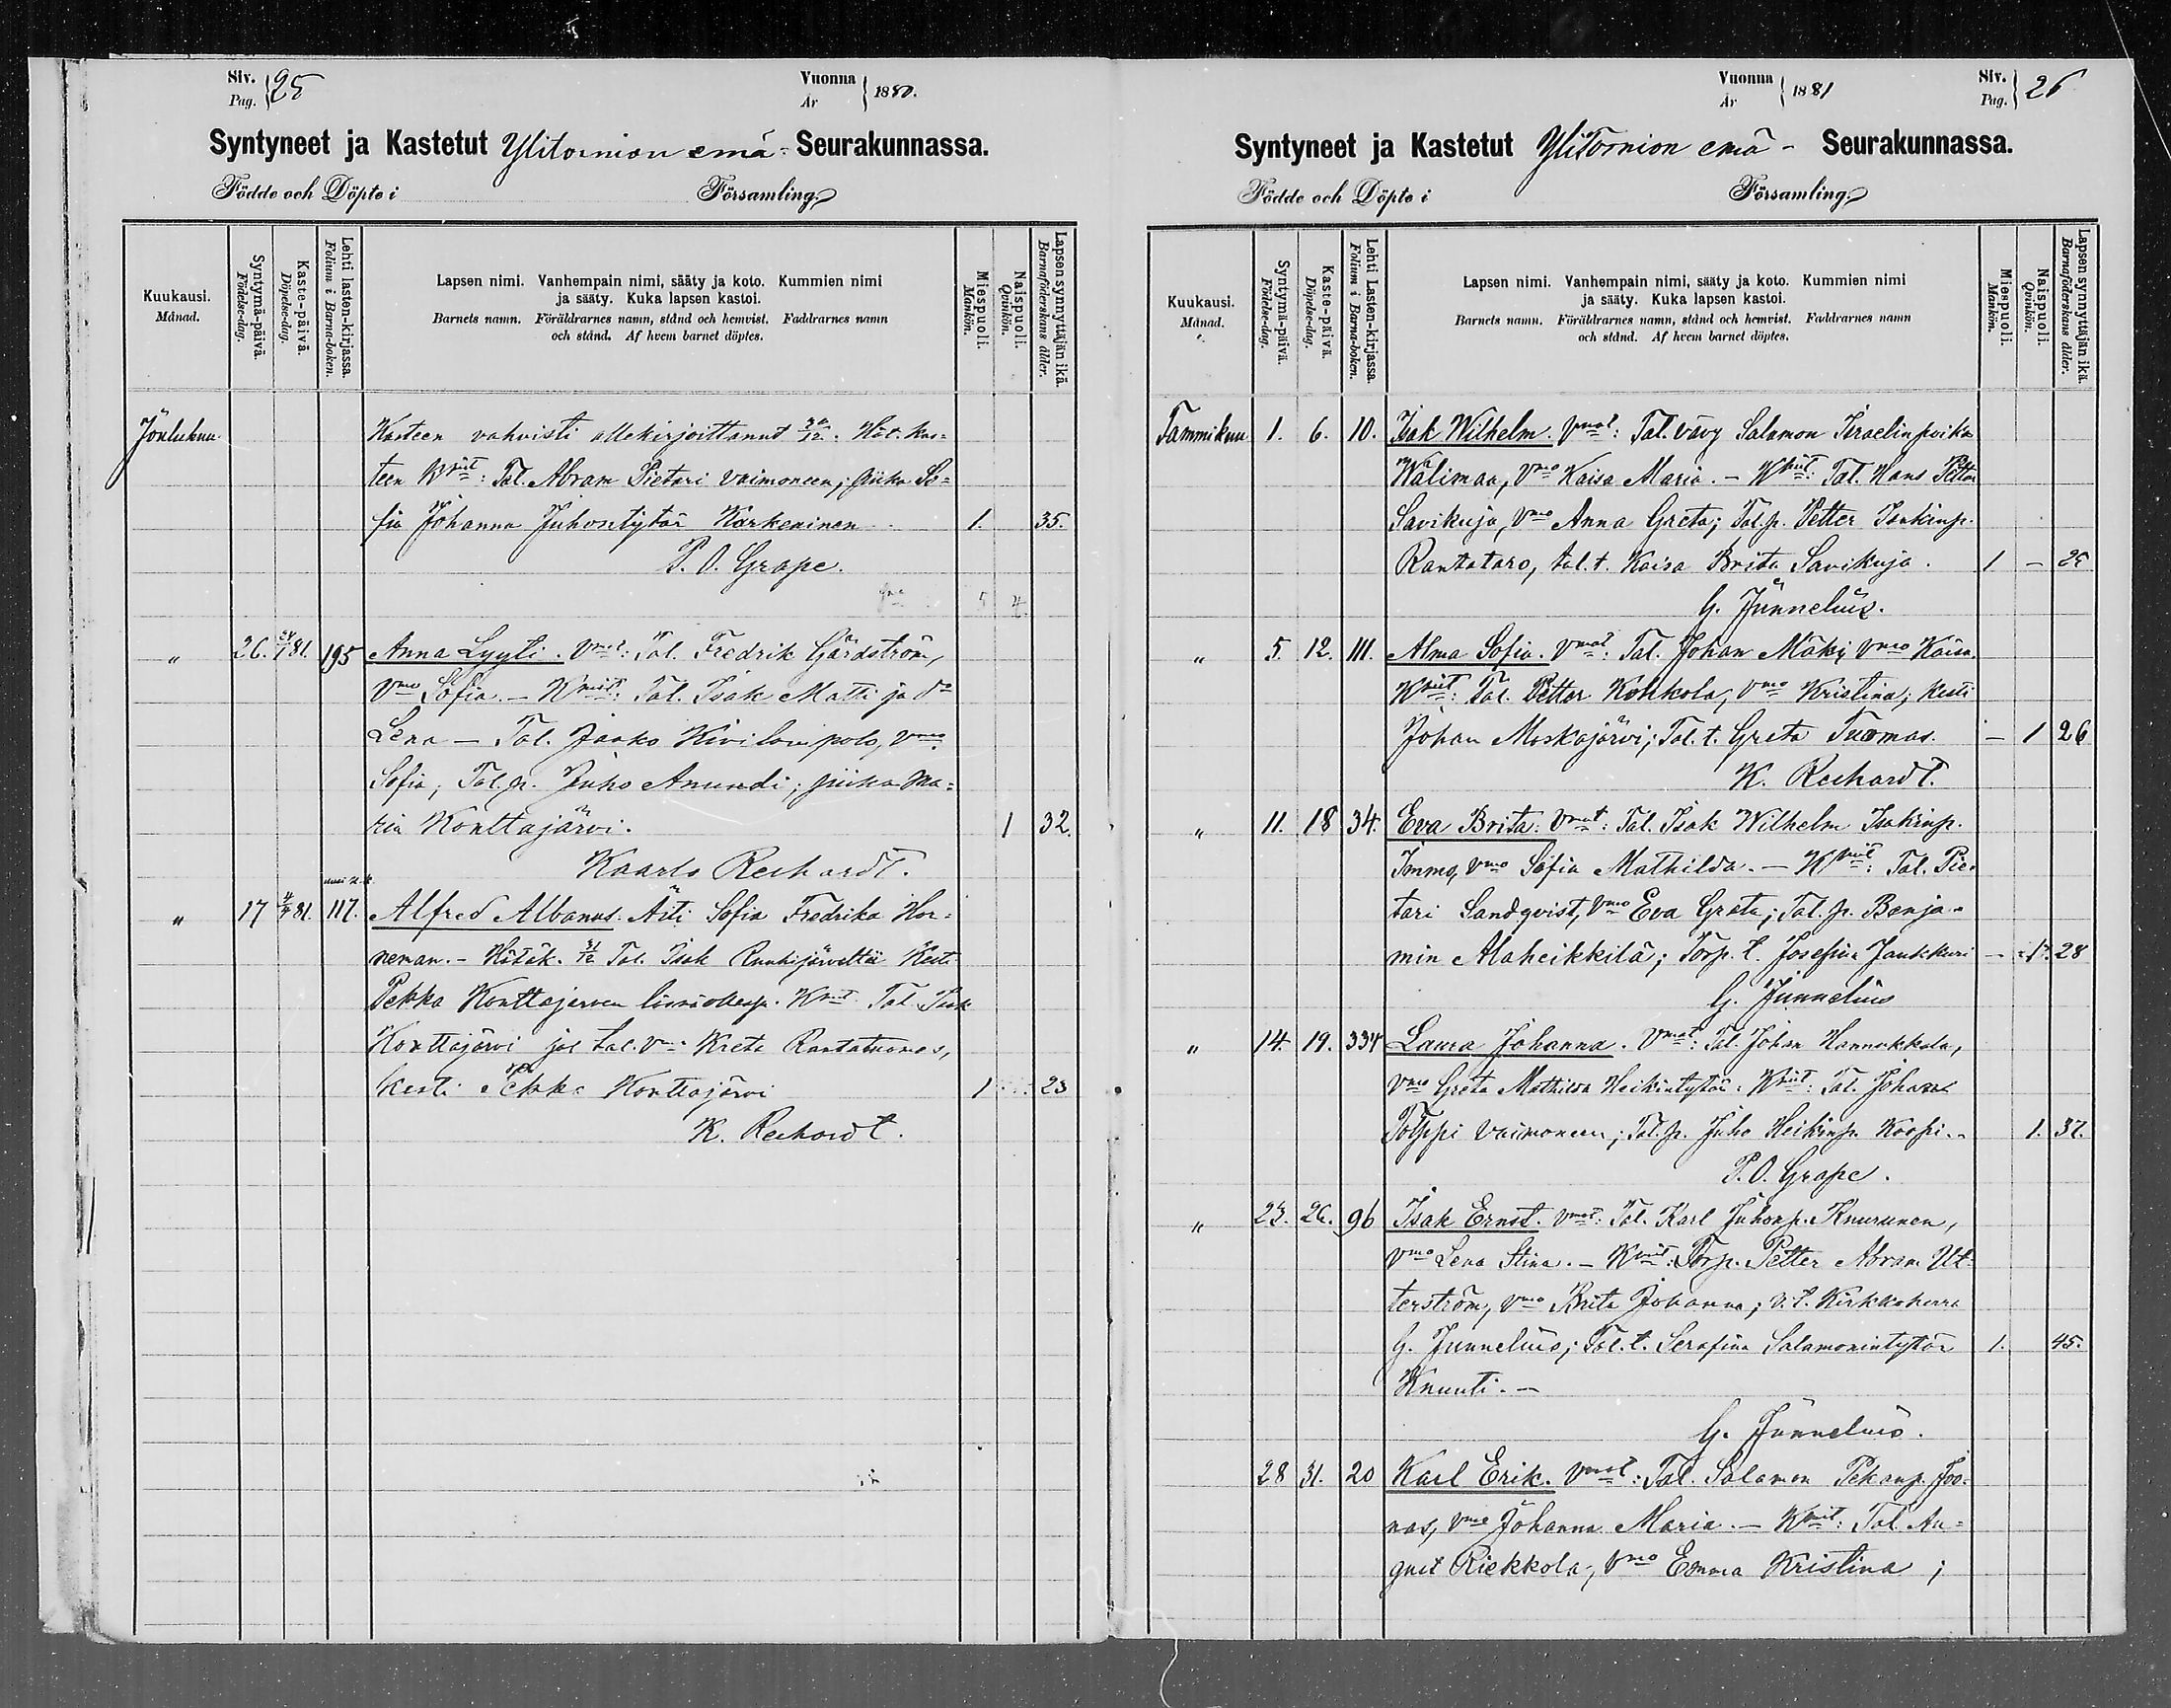 Siv. Pag. 25
Vuonna År 1880.
Syntyneet ja Kastetut Ylitornion emä- Seurakunnassa.
Födde och Döpte i Församling
Kuukausi. Månad.
Syntymä-päivä. Födelse-dag.
Kaste-päivä. Döpelse-dag.
Lehti lasten-kirjassa. Folium i Barna-boken.
Lapsen nimi. Vanhempain nimi, sääty ja koto. Kummien nimi
ja sääty. Kuka lapsen kastoi.
Barnets namn. Föräldrarnes namn, stånd och hemvist. Faddrarnes namn
och stånd. Af hvem barnet döptes.
Miespuoli. Mankön.
Naispuoli. Qvinkön.
Lapsen synnyttäjän ikä. Barnaföderskans ålder.
Joulukuu Kasteen vahvisti allekirjoittanut 20/12. Hät. kas=
teen Kmit: Tal. Abram Pietari vaimoneen; piika So=
fia Johanna Juhontytär Karkeninen 1. 35.
P. O. Grape.
" 26. 24/1 81. 195 Anna Lyyti. Vmat: Tal. Fredrik Gärdström,
Vmo Sofia. - Kmit: Tal. Isak Matti ja do
Lena - Tal. Jaako Kivilompolo, Vmo
Sofia; Tal. p. Juho Anundi; piika Ma=
ria Konttajärvi. 1 32.
Kaarlo Rechardt.
" 17 81. 117. Alfred Albanus. Äiti Sofia Fredrika Hor=
neman. - Hätäk. 31/12 Tal. Isak Ruukijärveltä Kesti
Pekka Konttajerven Kmit Tal. Isak
Konttajärvi ja tal. Vmo Kreta Rantatuomas,
Kesti Pekka Konttajärvi 1 23
K. Rechardt.
Vuonna År 1881
Siv. Pag. 26
Syntyneet ja Kastetut Ylitornion emä- Seurakunnassa.
Födde och Döpte i Församling
Kuukausi. Månad.
Syntymä-päivä. Födelse-dag.
Kaste-päivä. Döpelse-dag.
Lehti Lasten-kirjassa. Folium i Barna-boken.
Lapsen nimi. Vanhempain nimi, sääty ja koto. Kummien nimi
ja sääty. Kuka lapsen kastoi.
Barnets namn. Föräldrarnes namn, stånd och hemvist. Faddrarnes namn
och stånd. Af hvem barnet döptes.
Miespuoli. Mankön.
Naispuoli. Qvinkön.
Lapsen synnyttäjän ikä. Barnaföderskans ålder.
Tammikuu 1. 6. 10. Isak Wilhelm. Vmat: Tal. vävy Salamon Israelinpoika
Wälimaa, Vmo Kaisa Maria. - Kmit: Tal. Hans Petter
Savikuja, Vmo Anna Greta; Tal. p. Petter Isakinp.
Rantataro, tal. t. Kaisa Brita Savikuja. 1 - 25
G. Junnelius.
" 5. 12. 111. Alma Sofia. Vmat: Tal. Johan Mäki, Vmo Kaisa.
Kmit: Tal. Petter Kohkola, Vmo Kristina; Kesti
Johan Moskojärvi; Tal. t. Greta Tuomas. - 1 26
K. Rechardt.
" 11. 18 34. Eva Brita: Vmat: Tal. Isak Wilhelm Isakinp.
Immo, Vmo Sofia Mathilda. - Kmit: Tal. Pie=
tari Sandqvist, Vmo Eva Greta; Tal. p. Benja=
min Alaheikkilä; Torp. t. Josefina Jaukkuri - 1. 28
G. Junnelius
" 14. 19. 334 Laura Johanna. Vmat: Tal. Johan Hannukkala,
Vmo Greta Mathilda Heikintytär. Kmit: Tal. Johan
Tolppi vaimoneen; Tal. p. Juho Heikinp. Koopi. 1. 37.
P. O. Grape.
" 23. 26. 96 Isak Ernst. Vmat: Tal. Karl Juhonp. Knurunen,
Vmo Lena Stina. - Kmit: Torp. Petter Abram Ut=
terström, Vmo Brita Johanna; v. t. Kirkkoherra
G. Junnelius; Tal. t. Serafina Salamonintytär 1. 45.
Knuuti. -
G. Junnelius.
28 31. 20 Karl Erik. Vmat: Tal. Salamon Pekanp. Joo=
nas, Vmo Johanna Maria. - Kmit: Tal. Au=
gust Riekkola, Vmo Emma Kristina;